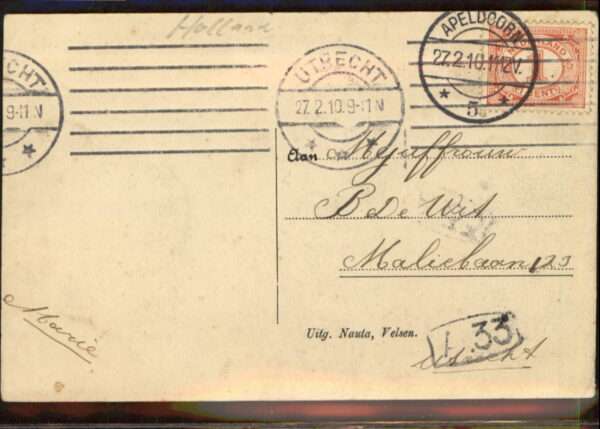 Holland
UTRECHT
9-11 N
UTRECHT
27.2.10.9-11 V
APELDOORN
27.2.10.11-12V.
5
NEDERLAND
CENT
Aan Mejuffrouw
B De Wit
Maliebaan 123
Utrecht
Marie
Uitg. Nauta, Velsen.
33